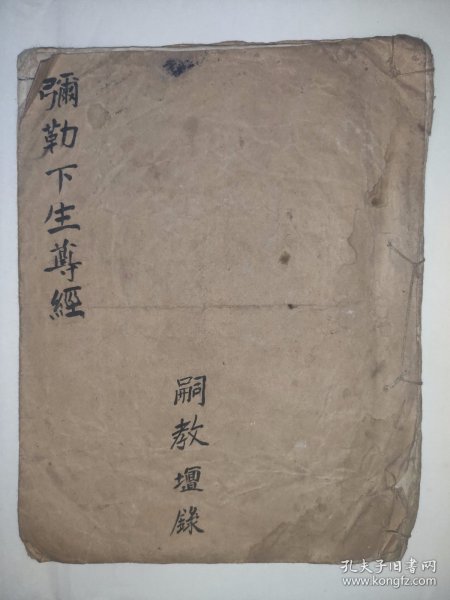 彌勒下生尊經
嗣教壇錄
孔夫子旧书网
www.kongfz.com